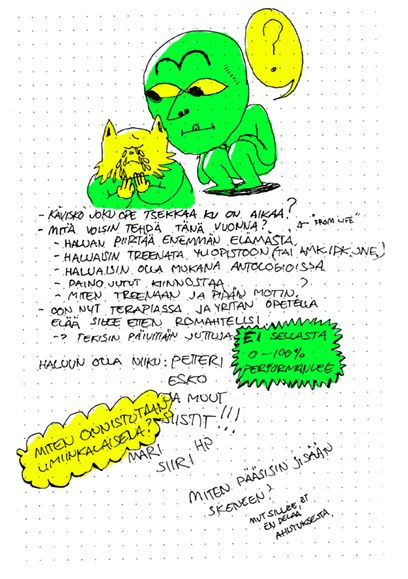 ?
- KÄVISKÖ JOKU OPE TSEKKAA KU ON AIKAA?
- MITÄ VOISIN TEHDÄ TÄNÄ VUONNA?
"FROM LIFE"
- HALUAN PIIRTÄÄ ENEMMÄN ELÄMÄSTÄ
- HALUAISIN TREENATA YLIOPISTOON (TAI AMK. JNE)
- HALUAISIN OLLA MUKANA ANTOLOGIOISSA
- PAINOJUTUT KIINNOSTAA
- MITEN TREENAAN JA PIDÄN MOTIN?
- OON NYT TERAPIASSA JA YRITÄN OPETELLA
ELÄÄ SILLEE ETTEN ROMAHTELISI
-> TEKISIN PÄIVITTÄIN JUTTUJA
EI SELLASTA
0-100%
PERFORMANCEE
HALUUN OLLA NIIKU: PETTERI
ESKO
JA MUUT
!!!
MITEN ONNISTUTAAN
LIMINKALAISELLA?
MARI
SIIRI
HP
MITEN PÄÄSISIN SISÄÄN
SKENEEN?
MUT SILLEE ET
EN
AHISTUKSESTA